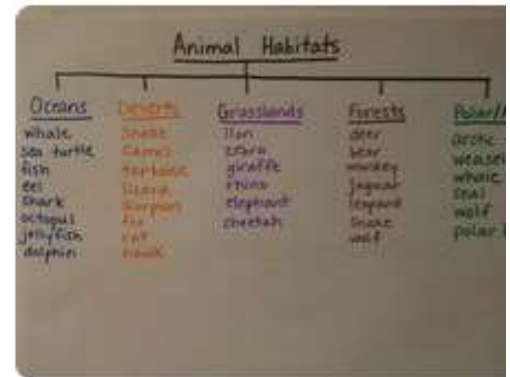 Animal Habitats
Oceans
whale
sea turtle
fish
eel
shark
octopus
jellyfish
dolphin
Deserts
snake
camel
tortoise
lizard
scorpion
fox
rat
hawk
Grasslands
lion
zebra
giraffe
rhino
elephant
cheetah
Forests
deer
bear
monkey
jaguar
leopard
snake
wolf
Polar/
arctic
weasel
whale
seal
wolf
polar